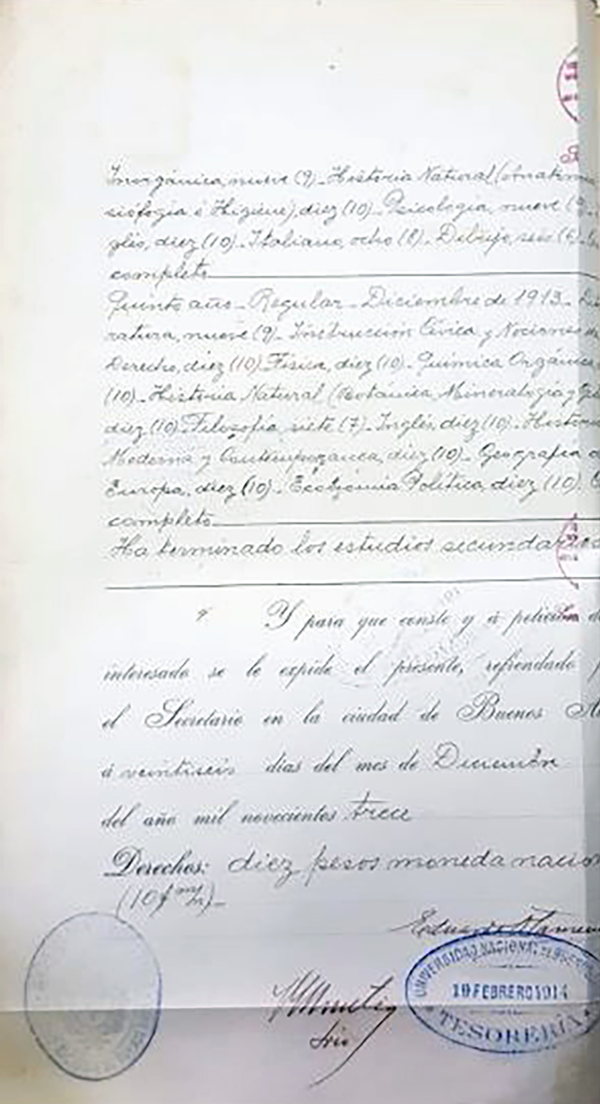 Inorgánica, nueve (9) - Historia Natural (Anatomía
siología é Higiene), diez (10) - Psicología, nueve (9) -
glés, diez (10) - Italiano, ocho (8) - Dibujo, seis (6) -
completo
Quinto año - Regular - Diciembre de 1913 -
ratura, nueve (9) - Instrucción Cívica y Nociones de
Derecho, diez (10) Física, diez (10) - Química Orgánica,
(10) - Historia Natural (Botánica, Mineralogía y
diez (10) Filosofía, siete (7) - Inglés, diez (10) - Historia
Moderna y Contemporanea, diez (10) - Geografía
Europa, diez (10) - Economía Política, diez (10)
completo
Ha terminado los estudios secundarios
Y para que conste y á petición
interesado se le expide el presente, refrendado
el Secretario en la ciudad de Buenos
á veintiseis días del mes de Diciembre
del año mil novecientos trece
Derechos: diez pesos moneda nacion
(10$ m/n) -
UNIVERSIDAD NACIONAL DE BUENOS
19 FEBRERO 1914
TESORERÍA
Srio